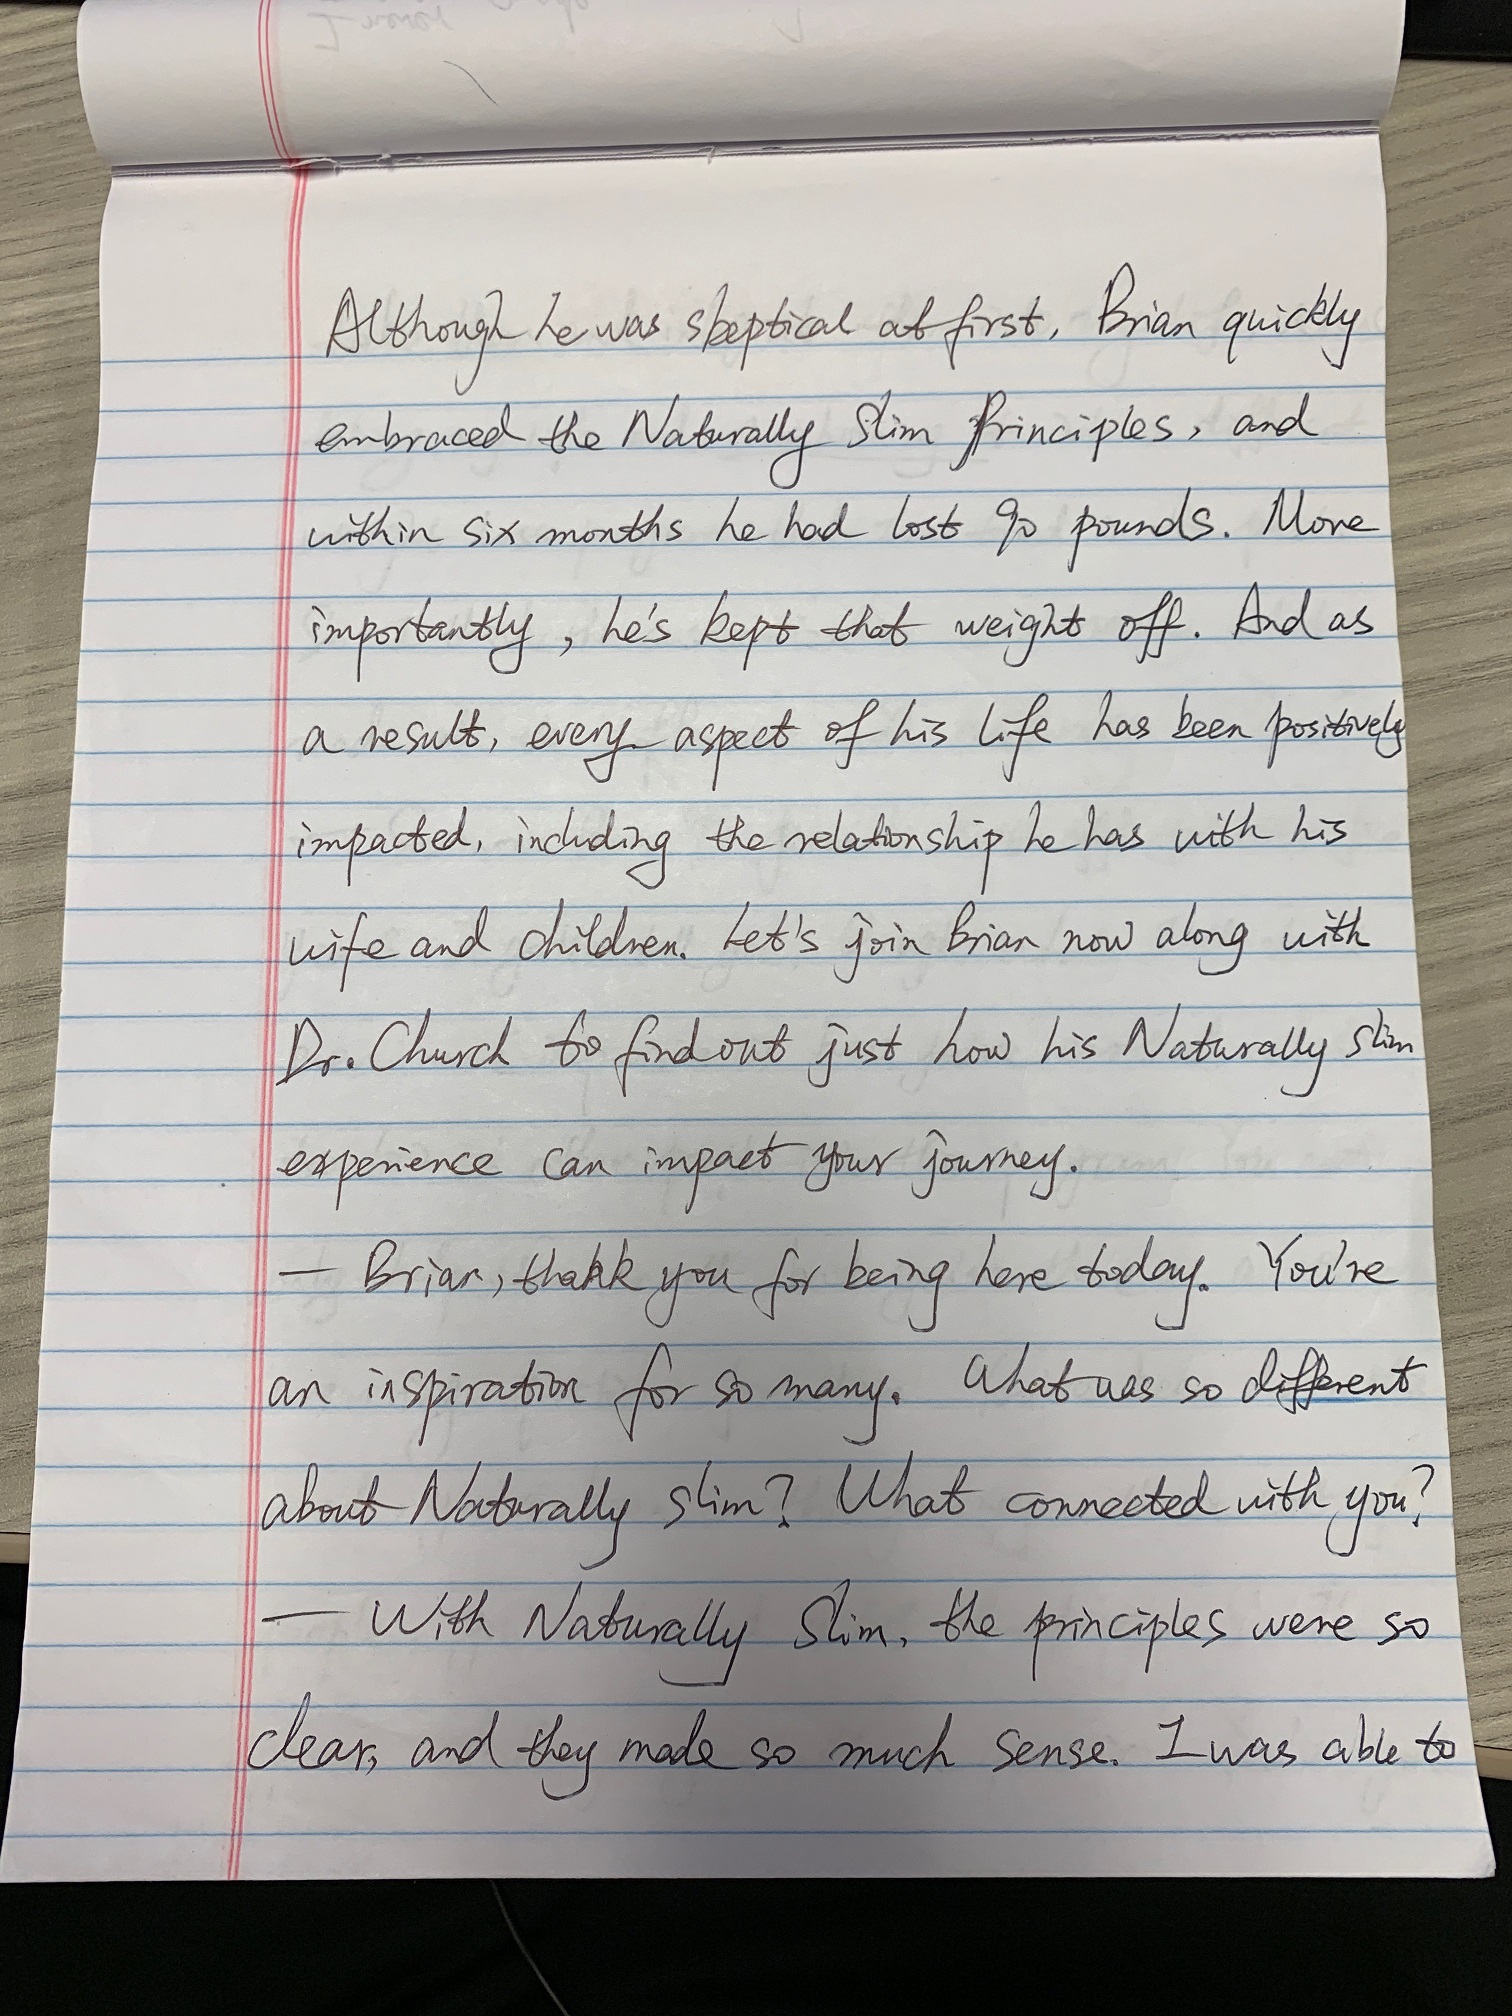 Although he was skeptical at first, Brian quickly
embraced the Naturally Slim Principles, and
within six months he had lost 90 pounds. More
importantly, he's kept that weight off. And as
a result, every aspect of his life has been positively
impacted, including the relationship he has with his
wife and children. Let's join Brian now along with
Dr. Church to find out just how his Naturally slim
experience can impact your journey.
— Brian, thank you for being here today. You're
an inspiration for so many. What was so different
about Naturally slim? What connected with you?
— With Naturally Slim, the principles were so
clear, and they made so much sense. I was able to